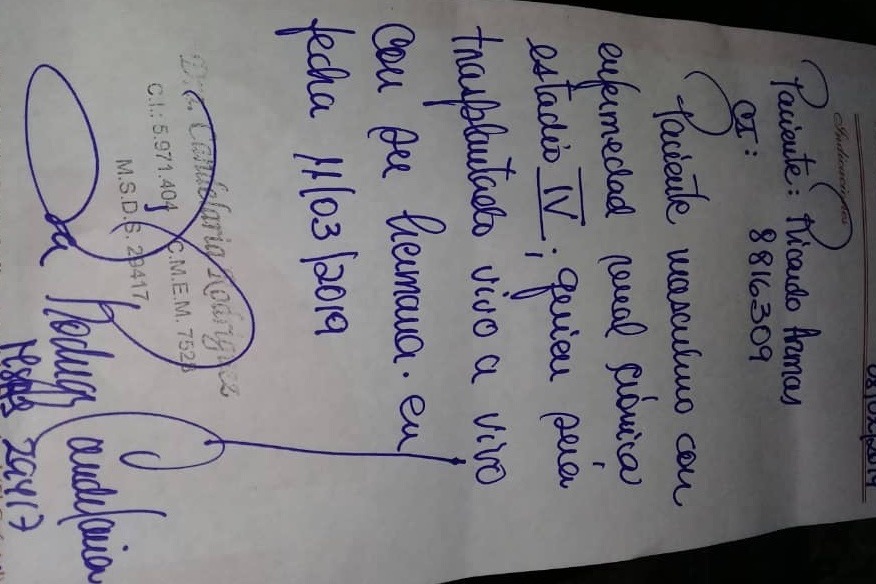 Indicaciones
Paciente: Ricardo Armas
CI: 8816309
Paciente masculino con
enfermedad renal crónica
estadio IV; quien sera
trasplantado vivo a vivo
con su hermana. en
fecha 11/03/2019
Dra. Candelaria Rodríguez
C.I.: 5.971.404 C.M.E.M. 7523
M.S.D.S. 29417
Dra Rodríguez Candelaria
29417